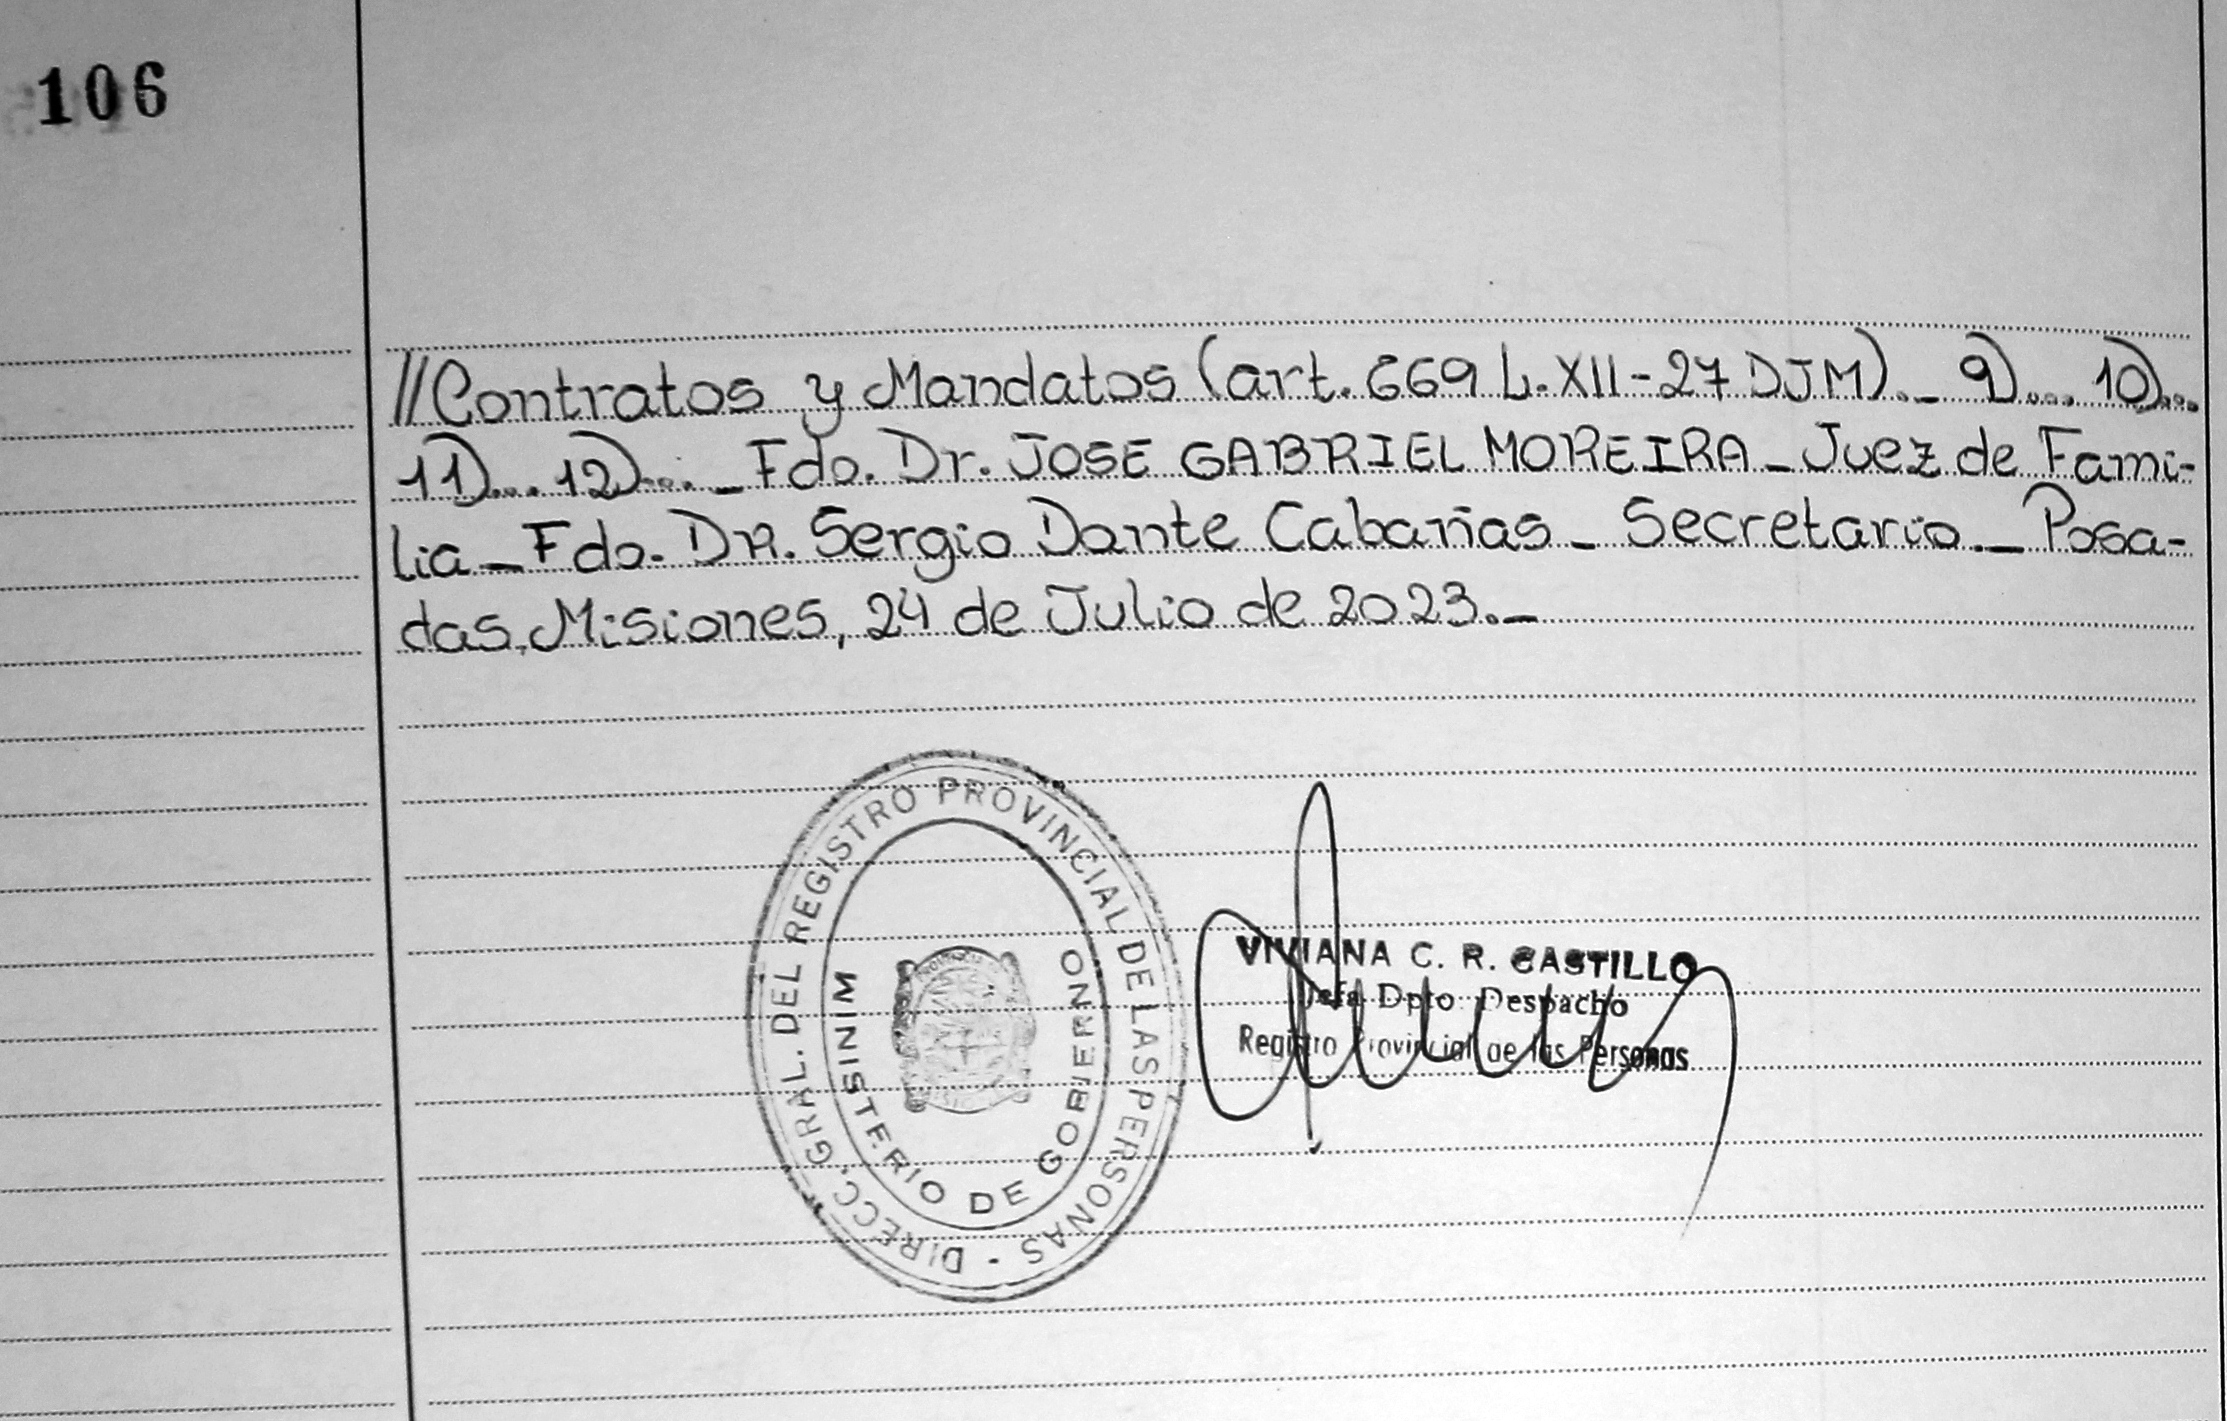 106
//Contratos y Mandatos (art. 669 L.XII-27 DJM)._ 9)... 10)...
11)... 12)... _ Fdo. Dr. JOSE GABRIEL MOREIRA _ Juez de Fami-
lia _ Fdo. DR. Sergio Dante Cabañas _ Secretario._ Posa-
das, Misiones, 24 de Julio de 2023._
DIRECC. GRAL. DEL REGISTRO PROVINCIAL DE LAS PERSONAS -
MINISTERIO DE GOBIERNO
VIVIANA C. R. CASTILLO
Jefa Dpto. Despacho
Registro Provincial de las Personas